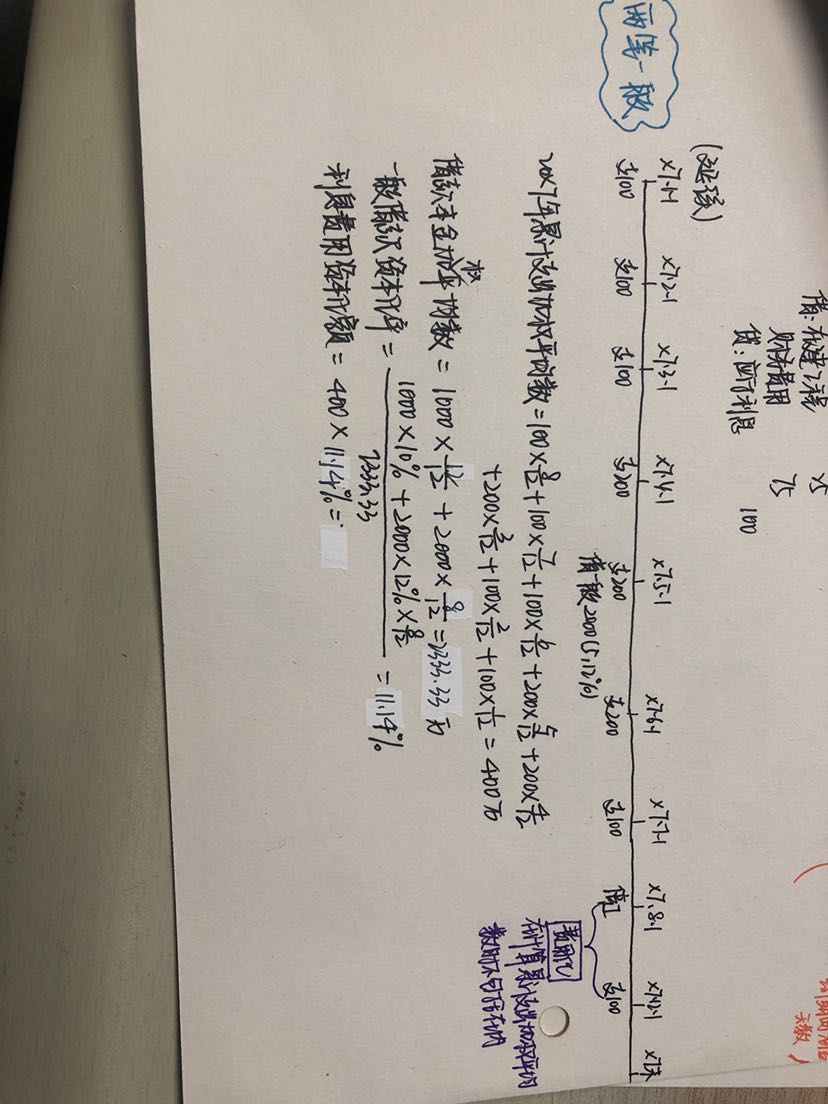 借：在建工程 25
财务费用 75
贷：应付利息 100
两笔一般
(延续)
X7.1.1 X7.2.1 X7.3.1 X7.4.1 X7.5.1 X7.6.1 X7.7.1 X7.8.1 X7.12.1 X7末
支100 支100 支100 支200 支200 支200 支100 停工 支100
借一般2000(5,12%)
费用化
在计算累计支出加权平均
数时不包括在内
20X7年累计支出加权平均数=100×8/12+100×7/12+100×6/12+200×5/12+200×4/12
+200×3/12+100×2/12+100×1/12=400万
借款本金加权平均数=1000×12/12+2000×8/12=2333.33万
一般借款资本化率=
1000×10%+2000×12%×8/12
2333.33
=11.14%
利息费用资本化额=400×11.14%=